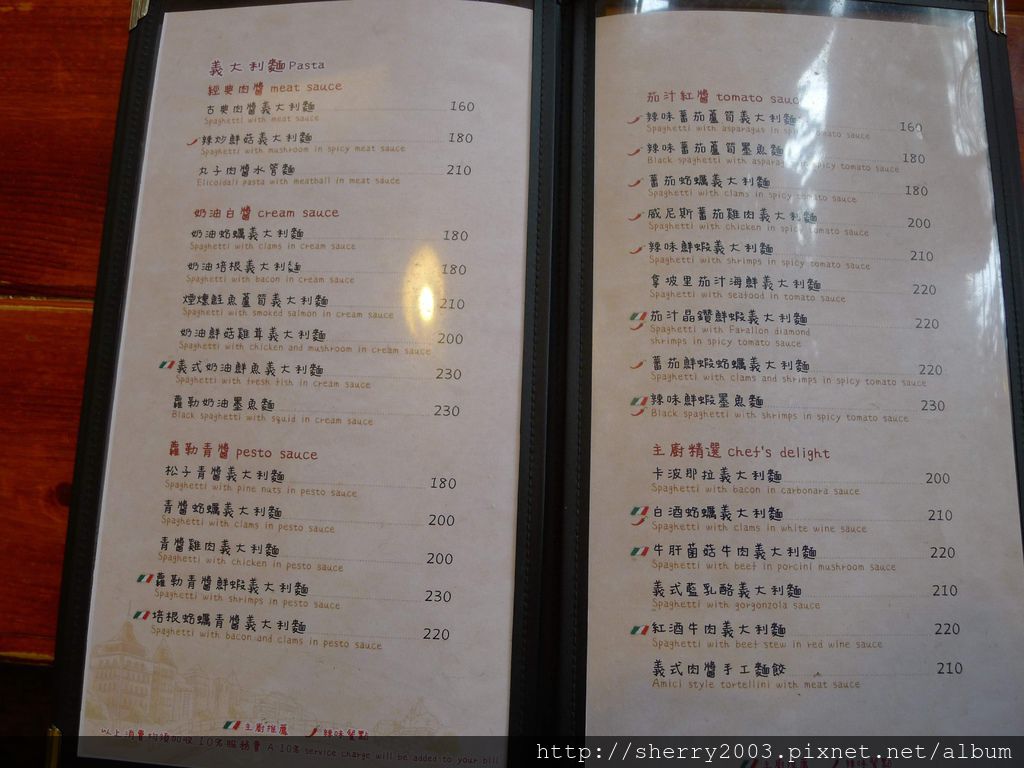 義大利麵 Pasta
經典肉醬 meat sauce
古典肉醬義大利麵 160
Spaghetti with meat sauce
辣炒鮮菇義大利麵 180
Spaghetti with mushroom in spicy meat sauce
丸子肉醬水管麵 210
Elicoidali pasta with meatball in meat sauce
奶油白醬 cream sauce
奶油蛤蠣義大利麵 180
Spaghetti with clams in cream sauce
奶油培根義大利麵 180
Spaghetti with bacon in cream sauce
煙燻鮭魚蘆筍義大利麵 210
Spaghetti with smoked salmon in cream sauce
奶油鮮菇雞茸義大利麵 200
Spaghetti with chicken and mushroom in cream sauce
義式奶油鮮魚義大利麵 230
Spaghetti with fresh fish in cream sauce
蘿勒奶油墨魚麵 230
Black spaghetti with squid in cream sauce
蘿勒青醬 pesto sauce
松子青醬義大利麵 180
Spaghetti with pine nuts in pesto sauce
青醬蛤蠣義大利麵 200
Spaghetti with clams in pesto sauce
青醬雞肉義大利麵 200
Spaghetti with chicken in pesto sauce
蘿勒青醬鮮蝦義大利麵 230
Spaghetti with shrimps in pesto sauce
培根蛤蠣青醬義大利麵 220
Spaghetti with bacon and clams in pesto sauce
主廚推薦 辣味餐點
以上消費均須加收10%服務費 A 10% service charge will be added to your bill
茄汁紅醬 tomato sauce
辣味蕃茄蘆筍義大利麵 160
Spaghetti with asparagus in spicy tomato sauce
辣味蕃茄蘆筍墨魚麵 180
Black spaghetti with asparagus in spicy tomato sauce
蕃茄蛤蠣義大利麵 180
Spaghetti with clams in spicy tomato sauce
威尼斯蕃茄雞肉義大利麵 200
Spaghetti with chicken in spicy tomato sauce
辣味鮮蝦義大利麵 210
Spaghetti with shrimps in spicy tomato sauce
拿坡里茄汁海鮮義大利麵 220
Spaghetti with seafood in tomato sauce
茄汁晶鑽鮮蝦義大利麵 220
Spaghetti with Farallon diamond
shrimps in spicy tomato sauce
蕃茄鮮蝦蛤蠣義大利麵 220
Spaghetti with clams and shrimps in spicy tomato sauce
辣味鮮蝦墨魚麵 230
Black spaghetti with shrimps in spicy tomato sauce
主廚精選 chef's delight
卡波那拉義大利麵 200
Spaghetti with bacon in carbonara sauce
白酒蛤蠣義大利麵 210
Spaghetti with clams in white wine sauce
牛肝菌菇牛肉義大利麵 220
Spaghetti with beef in porcini mushroom sauce
義式藍乳酪義大利麵 210
Spaghetti with gorgonzola sauce
紅酒牛肉義大利麵 220
Spaghetti with beef stew in red wine sauce
義式肉醬手工麵餃 210
Amici style tortellini with meat sauce
主廚推薦 辣味餐點
http://sherry2003.pixnet.net/album